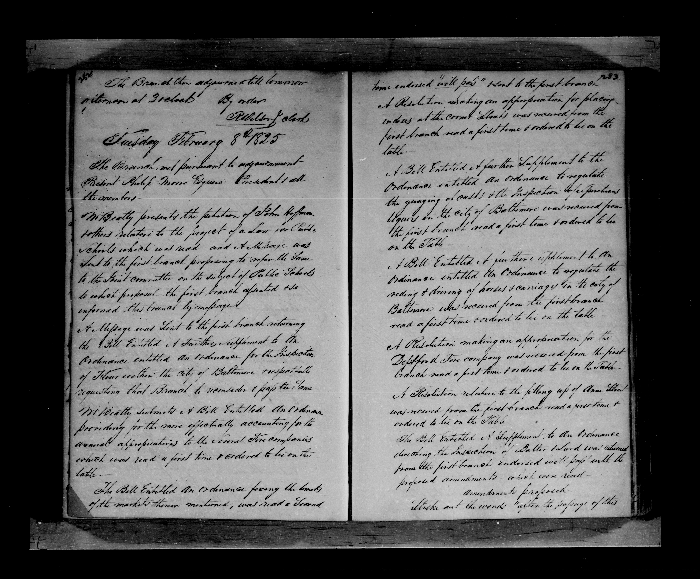 The Branch then adjourned till tomorrow
afternoon at 3 oclock By order
Clerk
Tuesday February 8th 1825
The Branch met pursuant to adjournment
Present Philip Moore Esquire President & all
the members
Mr Beatty presents the petition of John Hoffman
& others relative to the project of a Law on Public
Schools which was read and A Message was
Sent to the first branch proposing to refer the Same
to the Joint committee on the subject of Public Schools
to which proposal the first branch assented & so
informed this branch by message
A Message was Sent to the first branch returning
the Bill Entitled A Further supplement to An
Ordinance entitled An Ordinance for the Inspection
of Flour within the City of Baltimore
requesting that Branch to reconsider & pass the Same
Mr Beatty submits A Bill Entitled An Ordinance
providing for the more effectually accounting for the
annual appropriations to the several Fire companies
which was read a first time & ordered to lie on the
table
The Bill Entitled An Ordinance fixing the
of the markets therein mentioned, was read a Second
283
time endorsed "will pass" & sent to the first branch
A Resolution making an appropriation for placing
at the was received from the
first branch read a first time & ordered to lie on the
table
A Bill Entitled A further Supplement to the
Ordinance entitled An Ordinance to regulate
the guaging of casks & the Inspection of
liquors in the City of Baltimore was received from
the first branch read a first time & ordered to lie
on the Table
A Bill Entitled A further supplement to An
Ordinance entitled An Ordinance to regulate the
riding & driving of horses & carriages in the city of
Baltimore was received from the first branch
read a first time & ordered to lie on the table
A Resolution making an appropriation for the
Deptford Fire company was received from the first
branch read a first time & ordered to lie on the Table
A Resolution relative to the filling up of Ann Street
was received from the first branch read a first time &
ordered to lie on the Table
The Bill Entitled A Supplement to An Ordinance
directing the Inspection of Butter & Lard was returned
from the first branch endorsed will pass with the
proposed amendments which were read
amendments proposed
Strike out the words "after the passage of this